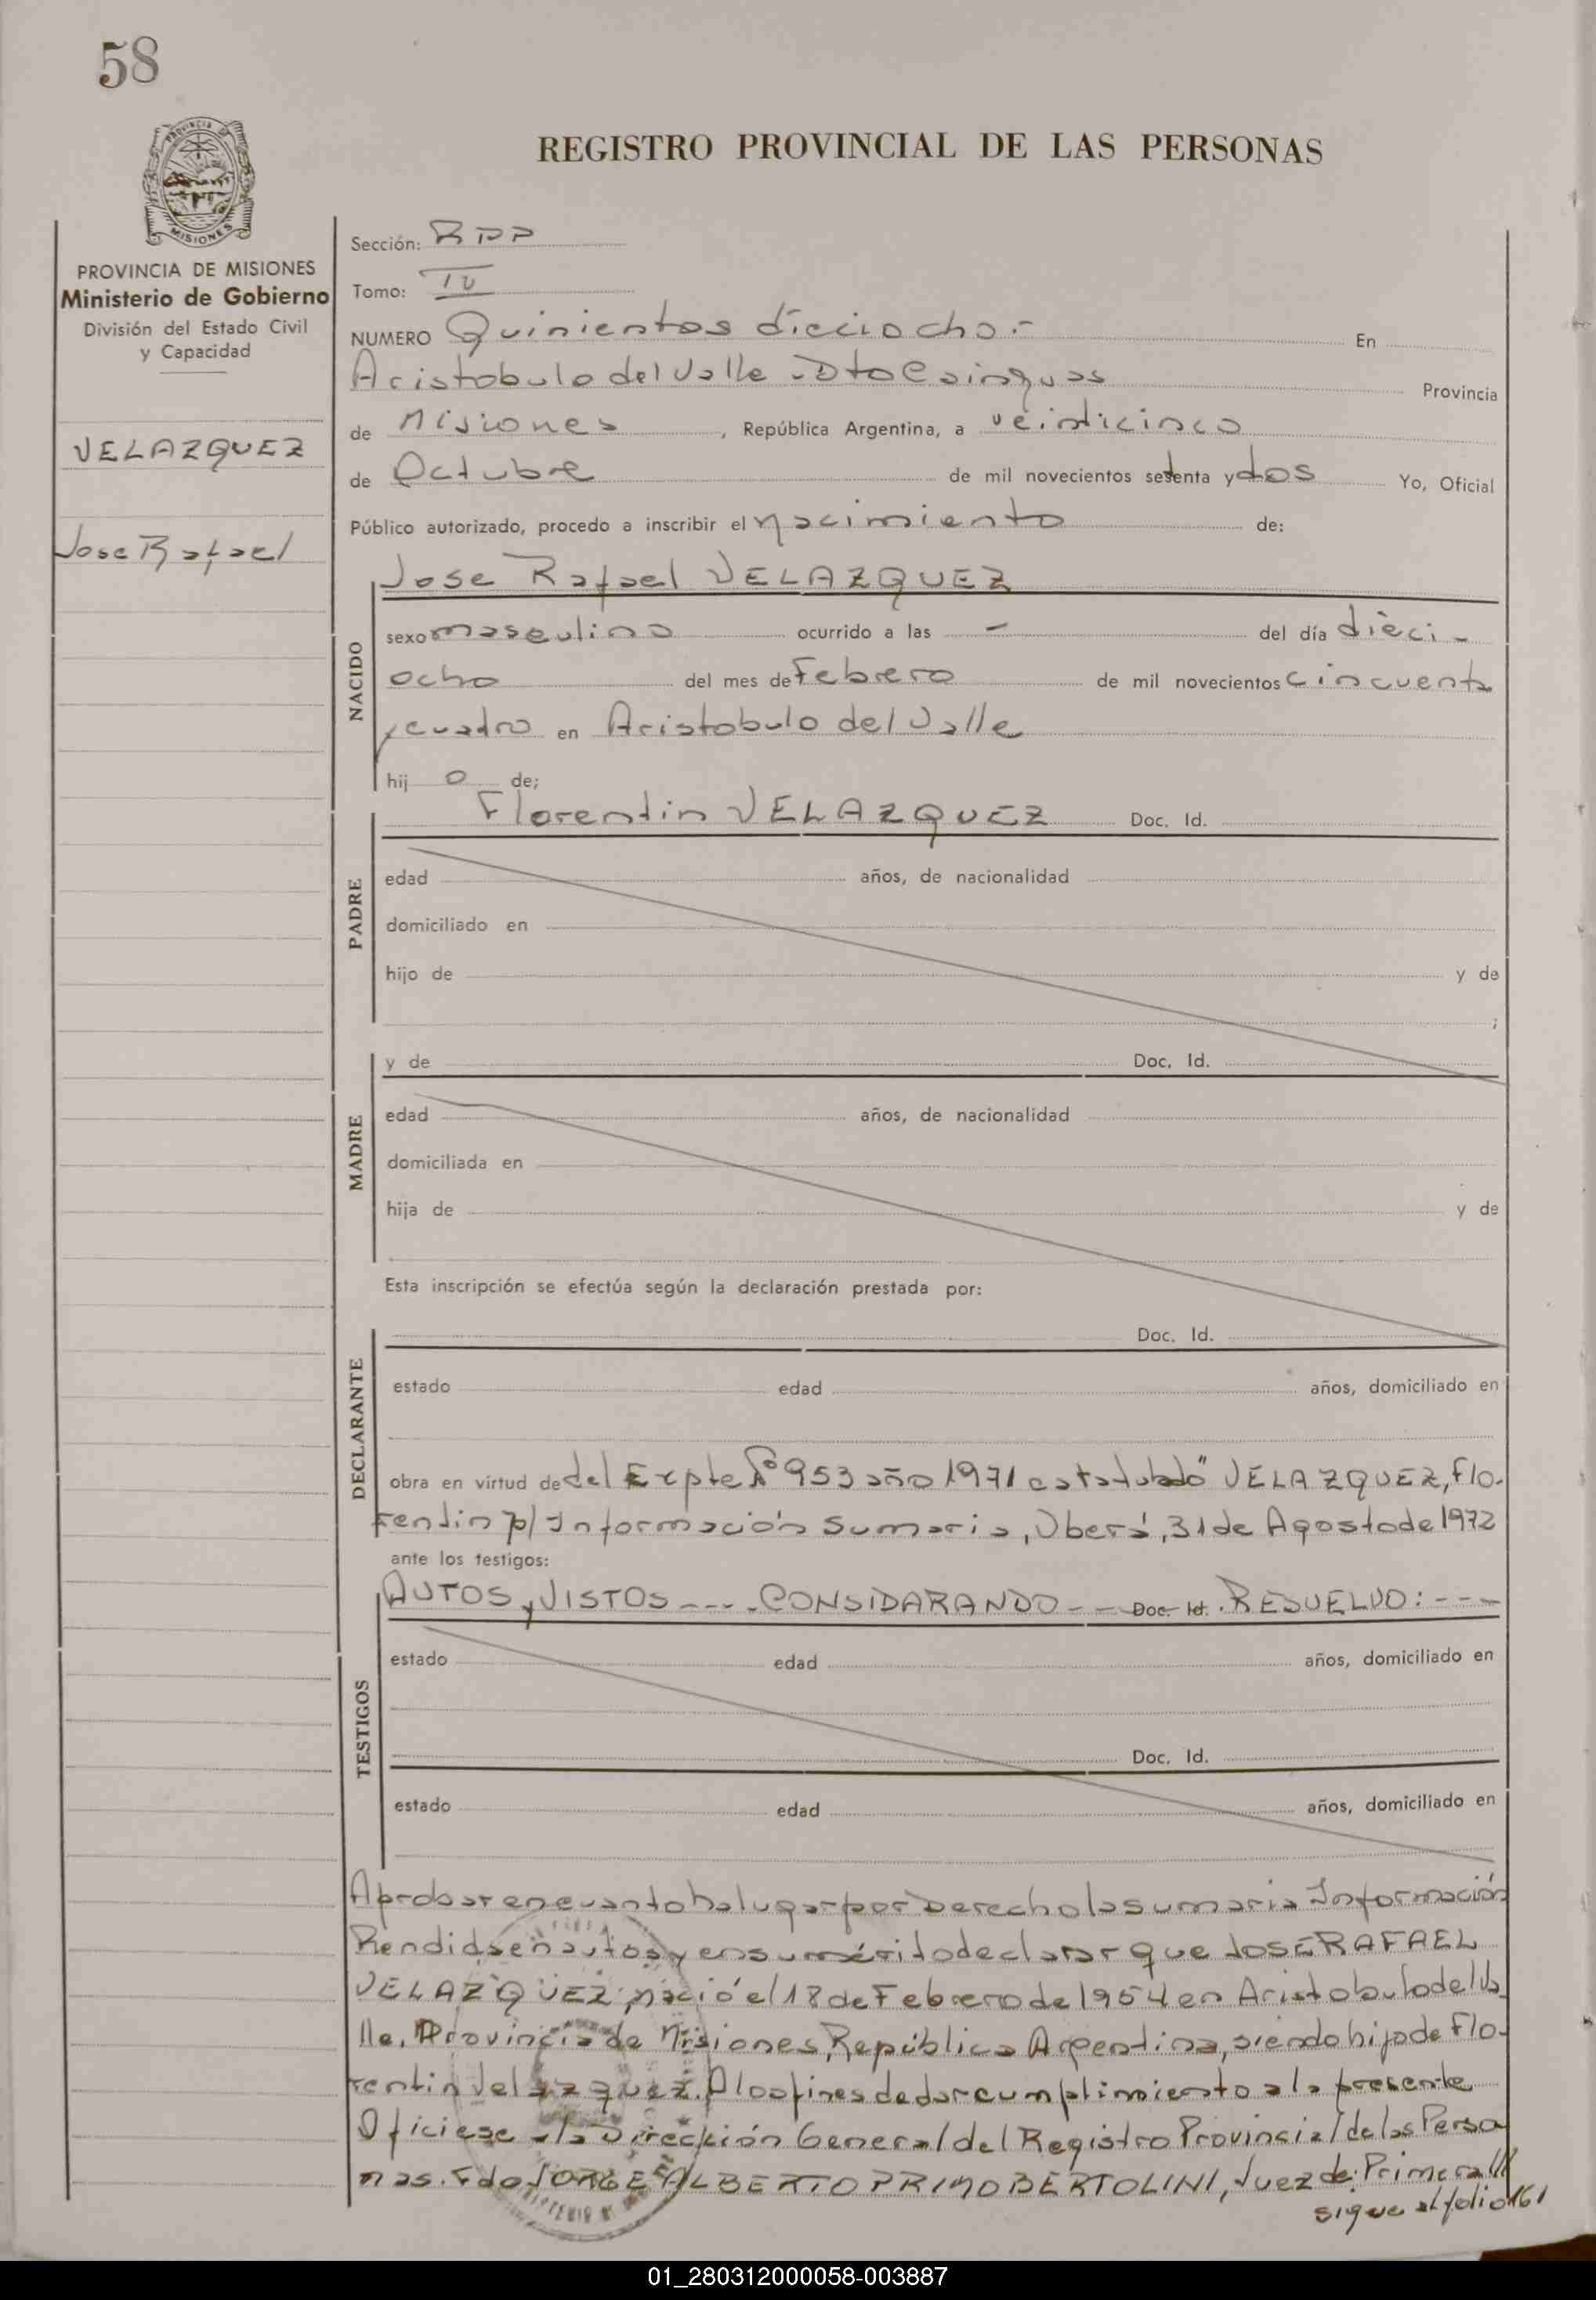 58
REGISTRO PROVINCIAL DE LAS PERSONAS
PROVINCIA DE MISIONES
Ministerio de Gobierno
División del Estado Civil
y Capacidad
VELAZQUEZ
Jose Rafael
Sección: RPP
Tomo: IV
NUMERO Quinientos dieciocho.- En
Aristobulo del Valle - Dto Cainguas Provincia
de Misiones, República Argentina, a veinticinco
de Octubre de mil novecientos setenta y dos Yo, Oficial
Público autorizado, procedo a inscribir el nacimiento de:
Jose Rafael VELAZQUEZ
NACIDO
sexo masculino ocurrido a las - del día dieci-
ocho del mes de Febrero de mil novecientos cincuenta
y cuatro en Aristobulo del Valle
hij o de;
Florentin VELAZQUEZ Doc. Id.
PADRE
edad años, de nacionalidad
domiciliado en
hijo de y de
;
y de Doc. Id.
MADRE
edad años, de nacionalidad
domiciliada en
hija de y de
Esta inscripción se efectúa según la declaración prestada por:
Doc. Id.
DECLARANTE
estado edad años, domiciliado en
obra en virtud de del Expte Nº 953 año 1971 catatulado" VELAZQUEZ, Flo-
rentin p/ Información Sumaria, Oberá, 31 de Agosto de 1972
ante los testigos:
AUTOS y VISTOS ---- CONSIDARANDO -- Doc. Id. RESUELVO: ---
TESTIGOS
estado edad años, domiciliado en
Doc. Id.
estado edad años, domiciliado en
Aprobar en cuanto ha lugar por Derecho la sumaria Información
Rendida en autos y en su mérito declarar que JOSE RAFAEL
VELAZQUEZ, nació el 18 de Febrero de 1954 en Aristobulo del Va-
lle, Provincia de Misiones, República Argentina, siendo hijo de Flo-
rentin Velazquez. A los fines de dar cumplimiento a la presente
Oficiese a la Dirección General del Registro Provincial de las Perso
nas. Fdo JORGE ALBERTO PRIMO BERTOLINI, Juez de Primera///
sigue al folio 161
01_280312000058-003887